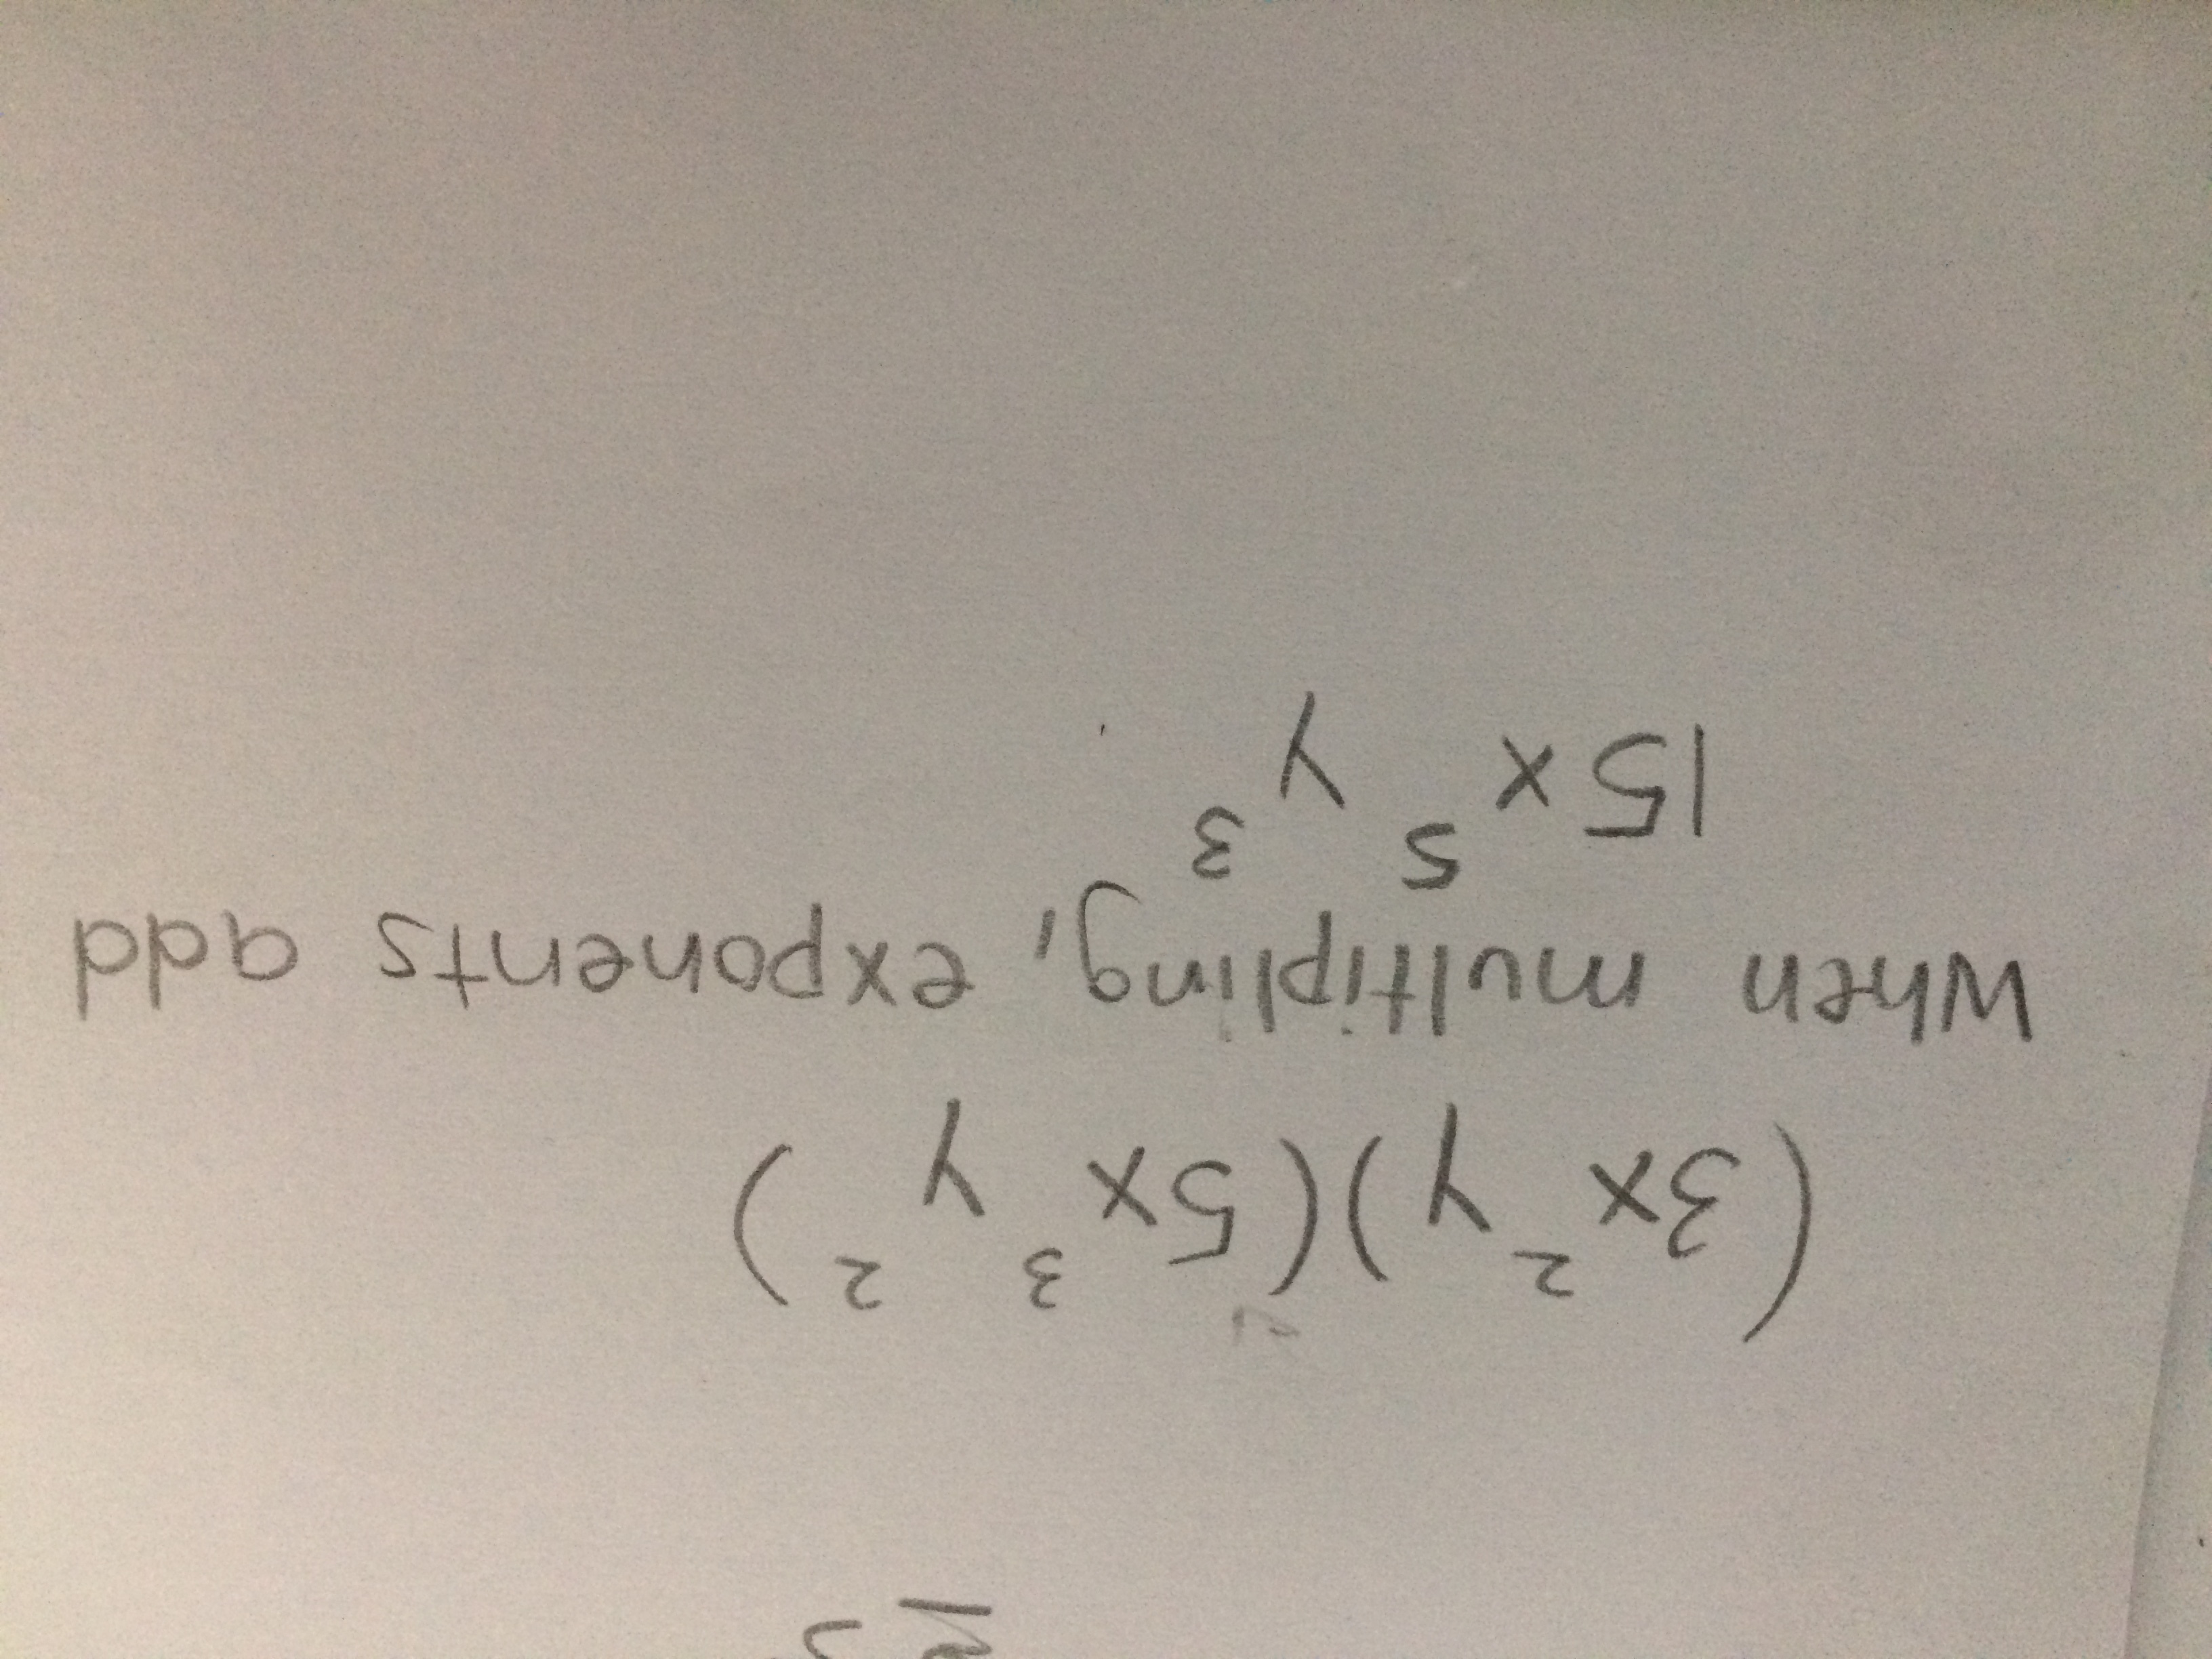 (3x²y)(5x³y²)
when multipling, exponents add
15x⁵y³